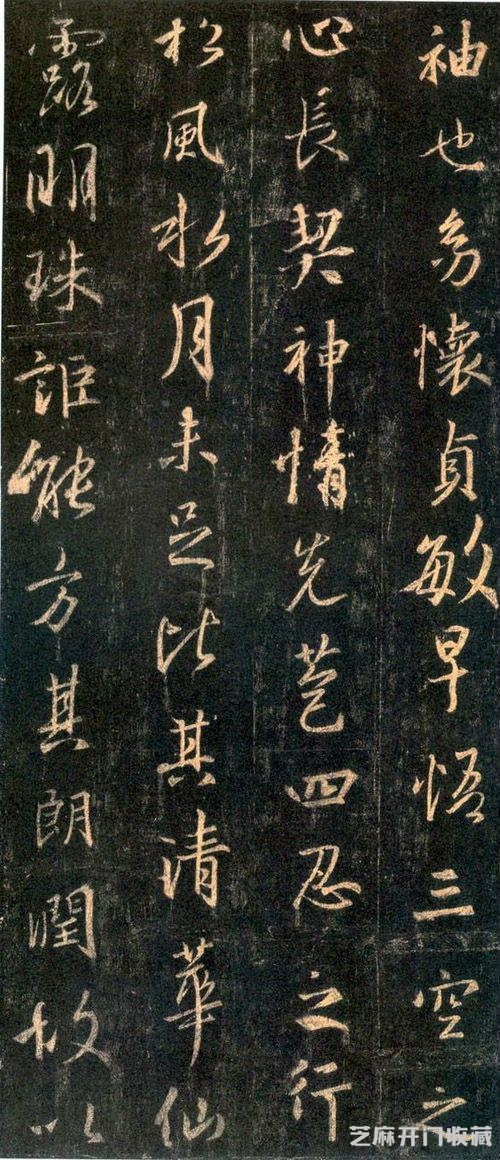 袖也幼懷貞敏早悟三空之
心長契神情先苞四忍之行
松風水月未足比其清華仙
露明珠詎能方其朗潤故以
芝麻开门收藏